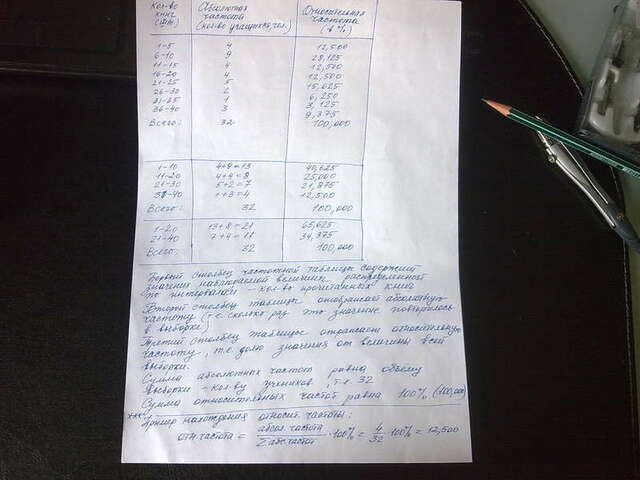 Кол-во книг (шт.) Абсолютная частота (кол-во учащихся, чел.) Относительная частота (в %)
1-5 4 12,500
6-10 9 28,125
11-15 4 12,500
16-20 4 12,500
21-25 5 15,625
26-30 2 6,250
31-35 1 3,125
36-40 3 9,375
Всего: 32 100,000
1-10 4+9=13 40,625
11-20 4+4=8 25,000
21-30 5+2=7 21,875
31-40 1+3=4 12,500
Всего: 32 100,000
1-20 13+8=21 65,625
21-40 7+4=11 34,375
Всего: 32 100,000
Первый столбец частотной таблицы содержит
значения наблюдаемой величины, распределенной
по интервалам - кол-во прочитанных книг
Второй столбец таблицы отображает абсолютную
частоту (т.е. сколько раз это значение повторилось
в выборке)
Третий столбец таблицы отражает относительную
частоту, т.е. долю значения от величины всей
выборки.
Сумма абсолютных частот равна объёму
выборки - кол-ву учеников, т.е. 32
Сумма относительных частот равна 100% (100,000)
*** Пример нахождения относит. частоты:
отн. частота = абсол. частота / Σ абс. частот · 100% = 4/32 · 100% = 12,500